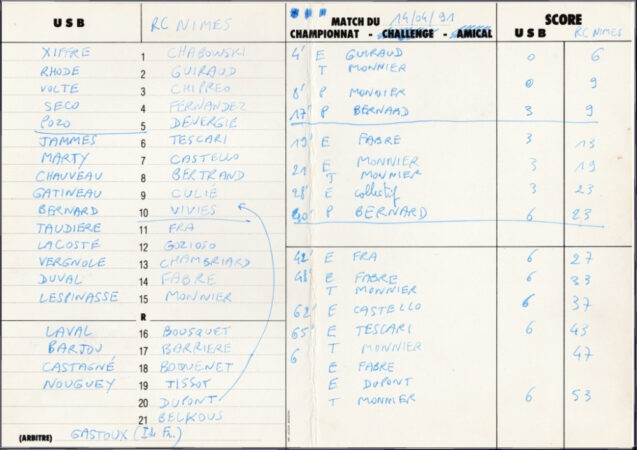 USB RC NIMES
XIFFRE 1 CHABOWSKI
RHODE 2 GUIRAUD
VOLTE 3 CHIPREO
SECO 4 FERNANDEZ
POZO 5 DEVERGIE
JAMMES 6 TESCARI
MARTY 7 CASTELLO
CHAUVEAU 8 BERTRAND
GATINEAU 9 CULIÉ
BERNARD 10 VIVIES
TAUDIÈRE 11 FRA
LACOSTÉ 12 GOZIOSO
VERGNOLE 13 CHAMBRIARD
DUVAL 14 FABRE
LESPINASSE 15 MONNIER
R
LAVAL 16 BOUSQUET
BARJOU 17 BARRIERE
CASTAGNÉ 18 BOQUENET
NOUGUEY 19 TISSOT
20 DUPONT
21 BELKOUS
(ARBITRE) GASTOUX (Ile Fr.)
MATCH DU 14/04/91
CHAMPIONNAT - CHALLENGE - AMICAL
SCORE
USB RC NIMES
4' E GUIRAUD 0 6
T MONNIER
8' P MONNIER 0 9
17' P BERNARD 3 9
19' E FABRE 3 13
21' E MONNIER 3 19
T MONNIER
28' E collectif 3 23
P BERNARD 6 23
42' E FRA 6 27
48' E FABRE 6 33
T MONNIER
62' E CASTELLO 6 37
65' E TESCARI 6 43
T MONNIER
6 E FABRE 47
E DUPONT
T MONNIER 6 53